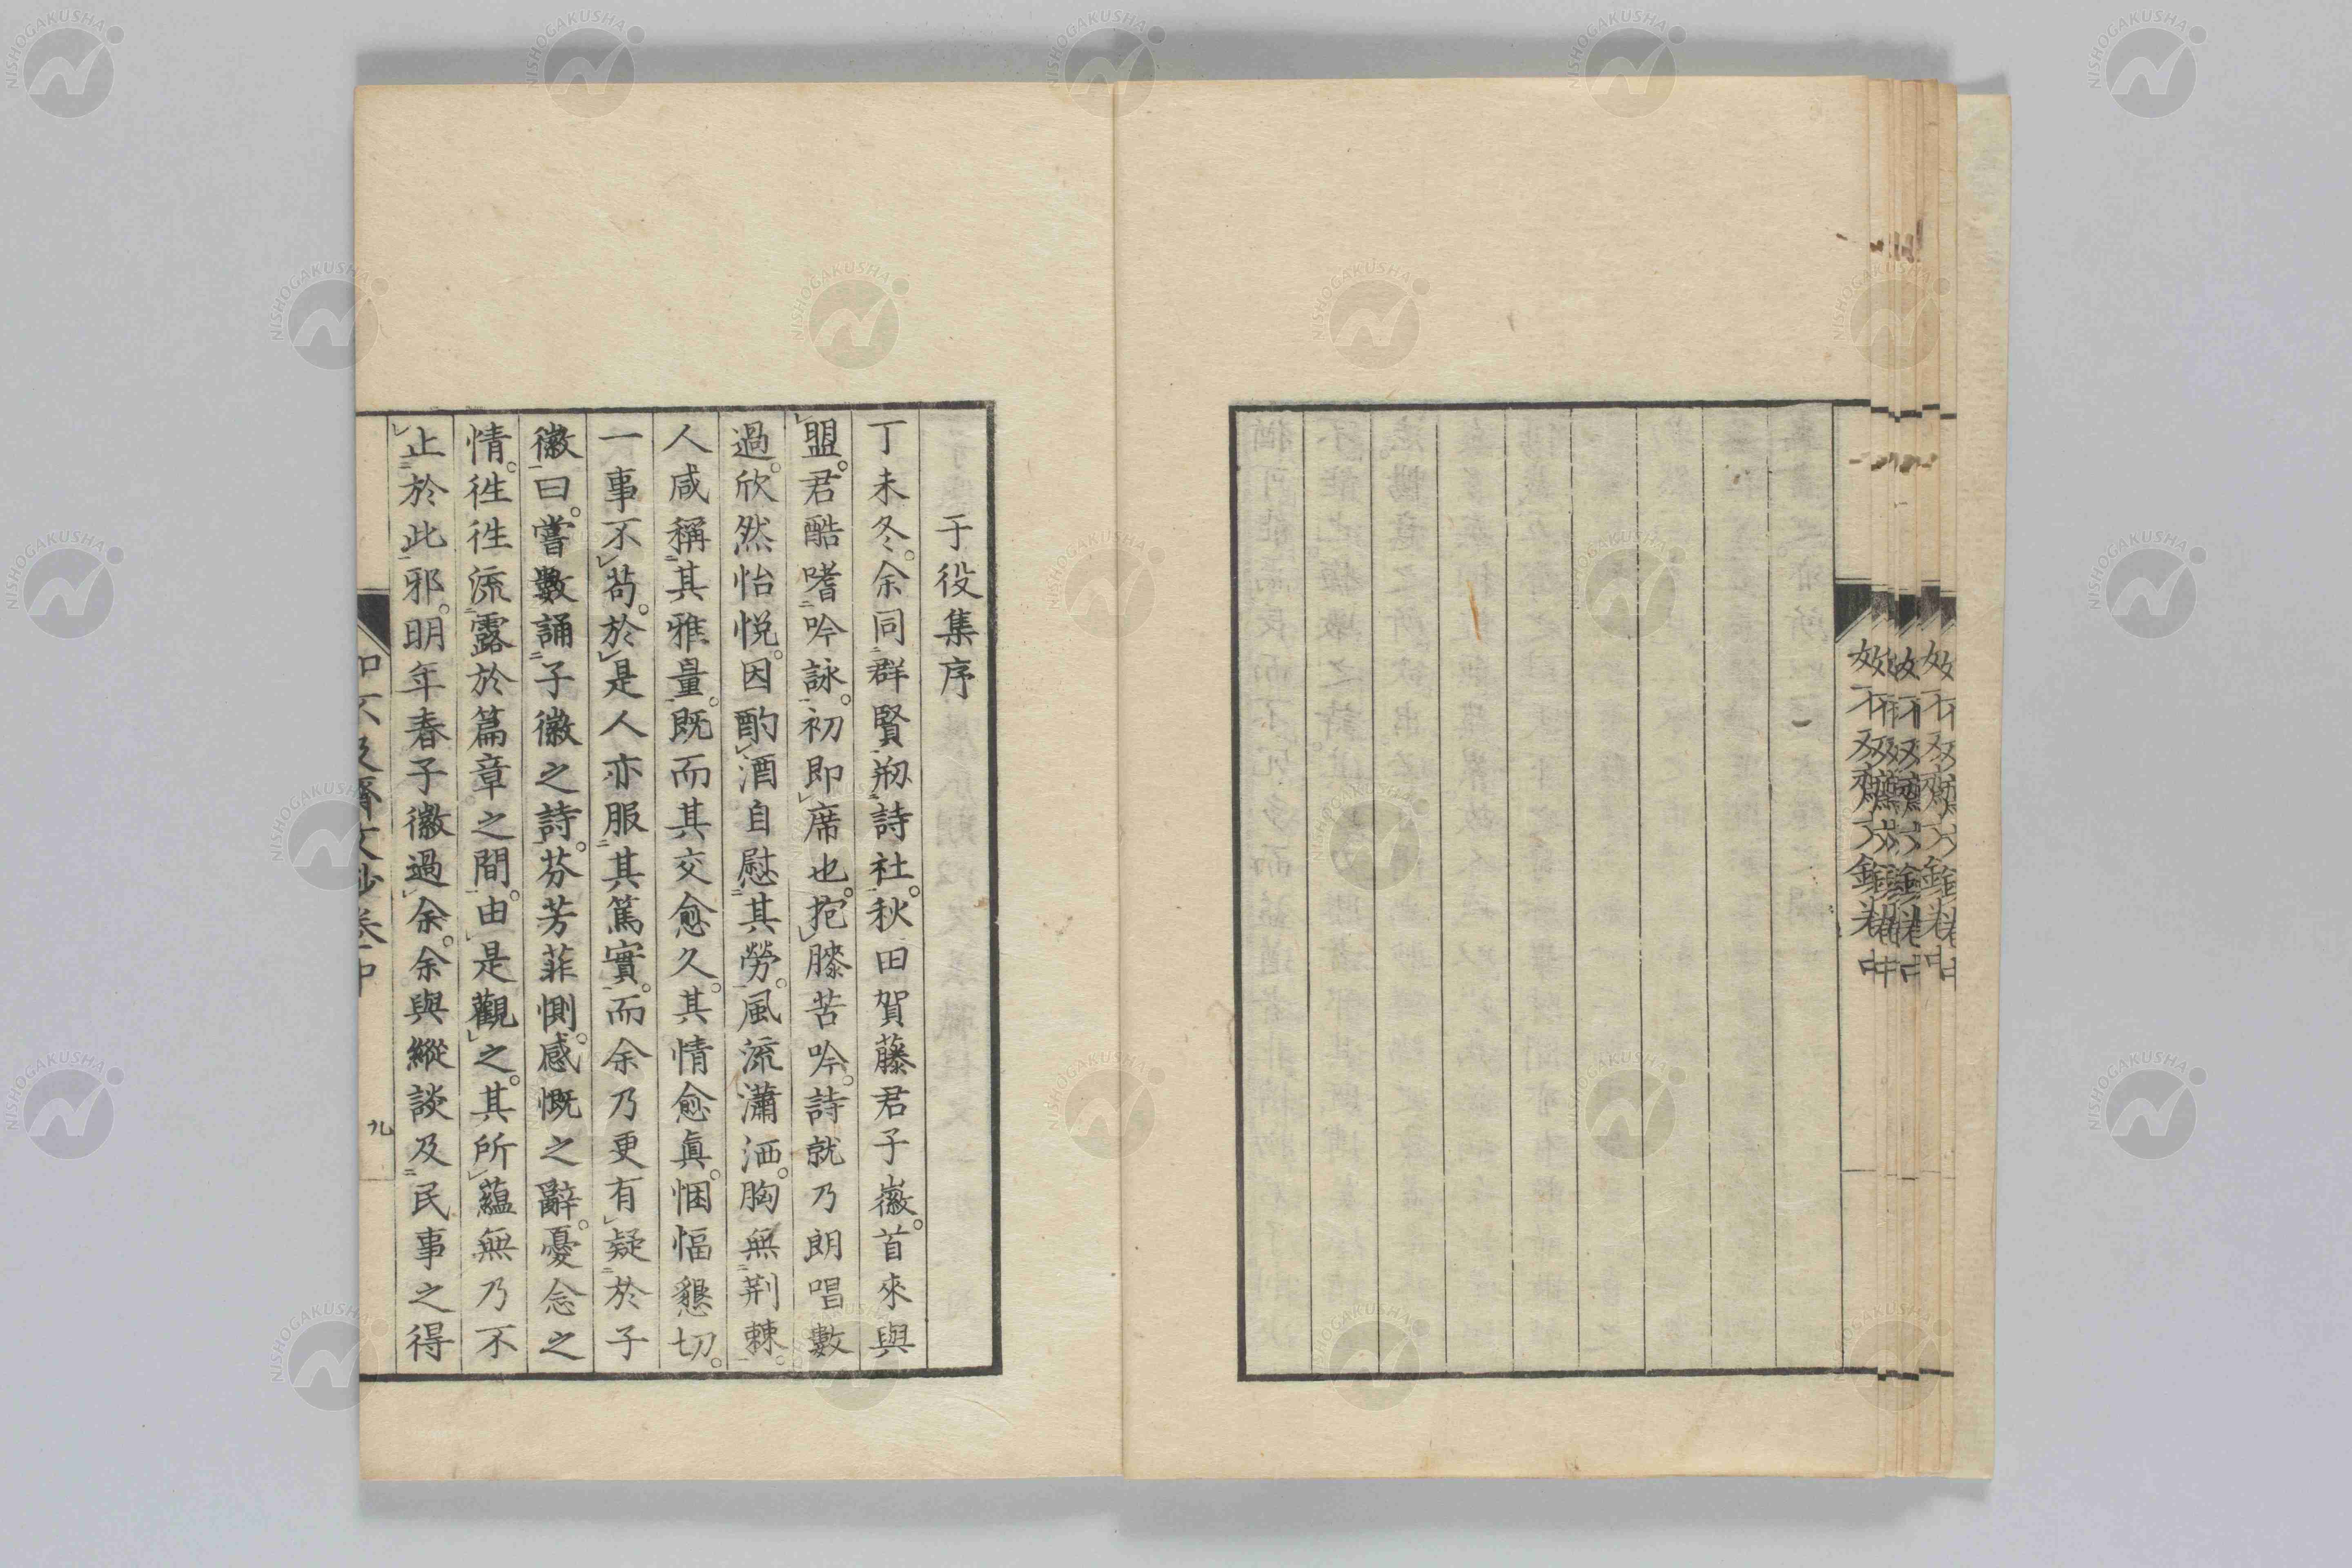 于役集序
丁未冬。余同群賢剏詩社。秋田賀藤君子徽。首來與
盟。君酷嗜吟詠。初即席也。抱膝苦吟。詩就乃朗唱數
過。欣然怡悅。因酌酒自慰其勞。風流瀟洒。胸無荆棘。
人咸稱其雅量。既而其交愈久。其情愈眞。悃愊懇切。
一事不苟。於是人亦服其篤實。而余乃更有疑於子
徽曰。嘗數誦子徽之詩。芬芳菲惻。感慨之辭。憂念之
情。徃徃流露於篇章之間。由是觀之。其所蘊無乃不
止於此邪。明年春子徽過余。余與縱談及民事之得
如不及齋文鈔卷中
九
NISHOGAKUSHA